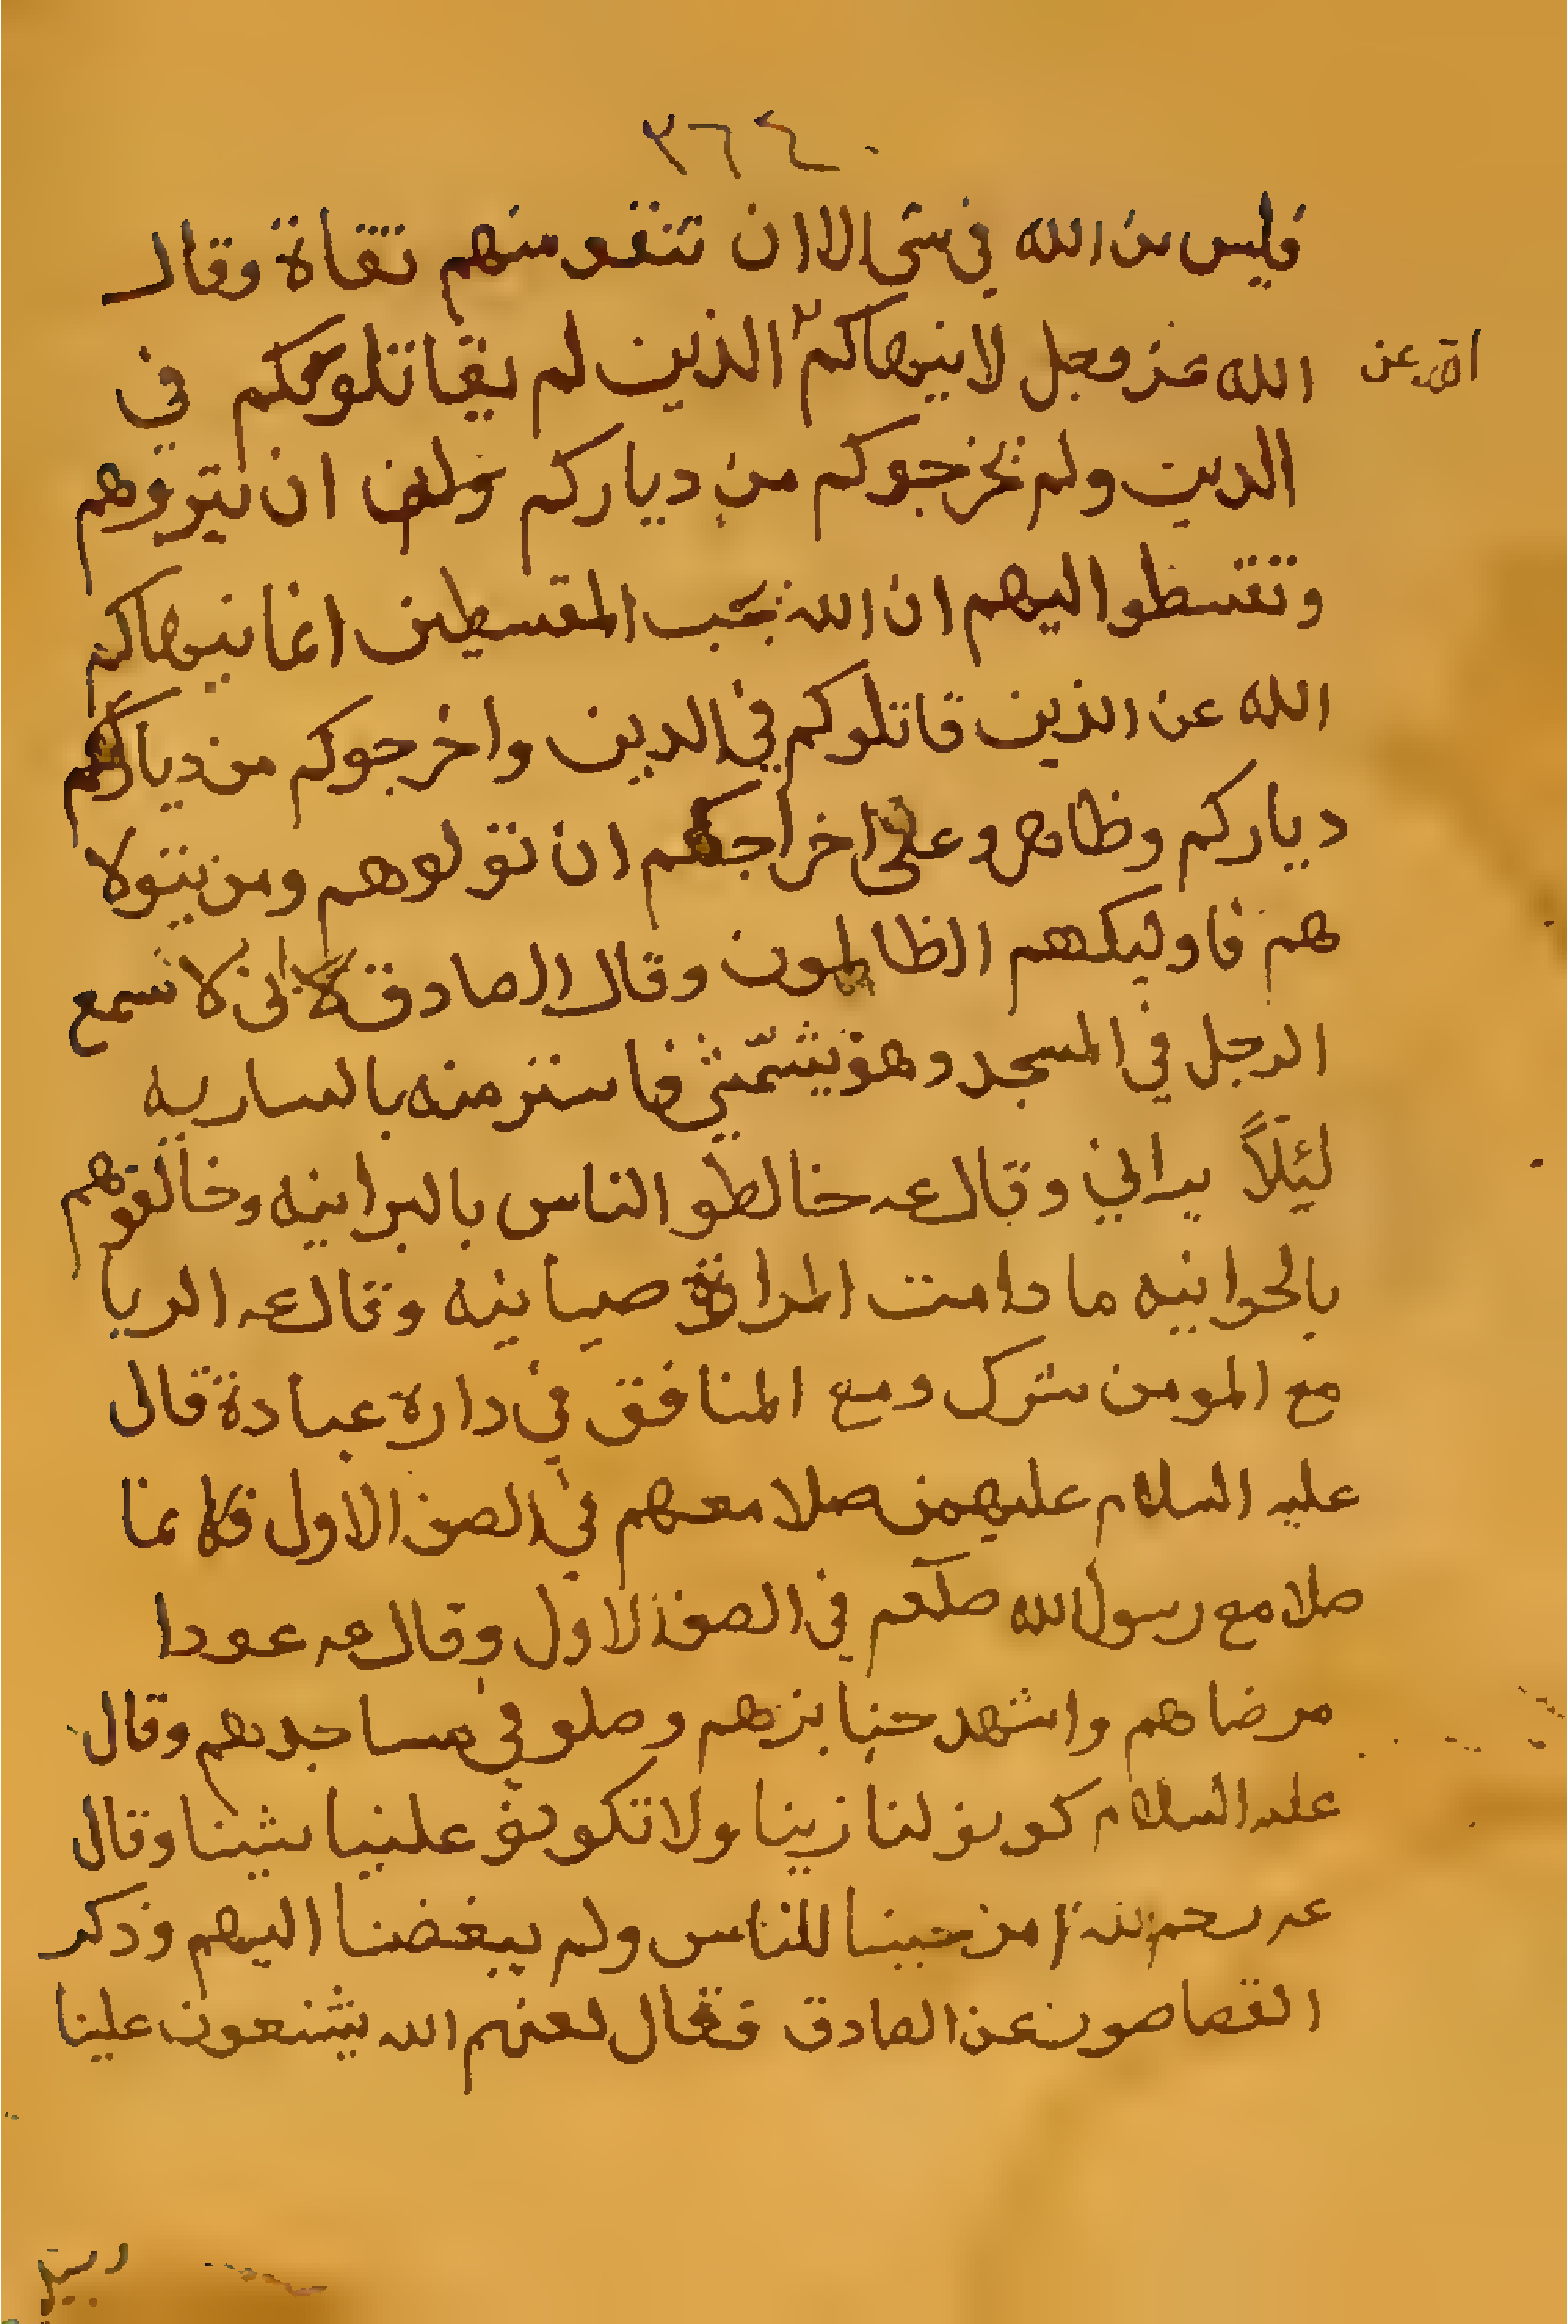 ٣٦٤
فليس من الله في شي الا ان تتقو منهم تقاة وقال
الله عز وجل لا ينهاكم الذين لم يقاتلوكم في
الله عن
الدين ولم يخرجوكم من دياركم ان تبروهم
وتقسطوا اليهم ان الله يحب المقسطين انما ينهاكم
الله عن الذين قاتلوكم في الدين واخرجوكم من
دياركم وظاهرو على اخراجكم ان تولوهم ومن يتولا
هم فاوليكهم الظالمون وقال الصادق لا تسمع
الرجل في المسجد وهو يشتمني فاستتر منه بالساريه
ليئلاً يراني وقال عه خالطو الناس بالبرانيه وخالفوهم
بالجوانيه ما دامت صبيانيه وقال عه الريا
مع المومن شرك ومع المنافق في داره عبادة قال
عليه السلام من صلا معهم في الصف الاول فكانما
صلا مع رسول الله صلعم في الصف الاول وقال عه عودا
مرضاهم واشهد جنايزهم وصلو في مساجدهم وقال
عليه السلام كونو لنا زينا ولا تكونو علينا شينا وقال
عه رحم الله من حببنا للناس ولم يبغضنا اليهم وذكر
القصاصون عن الصادق فقال لعنهم الله يشنعون علينا